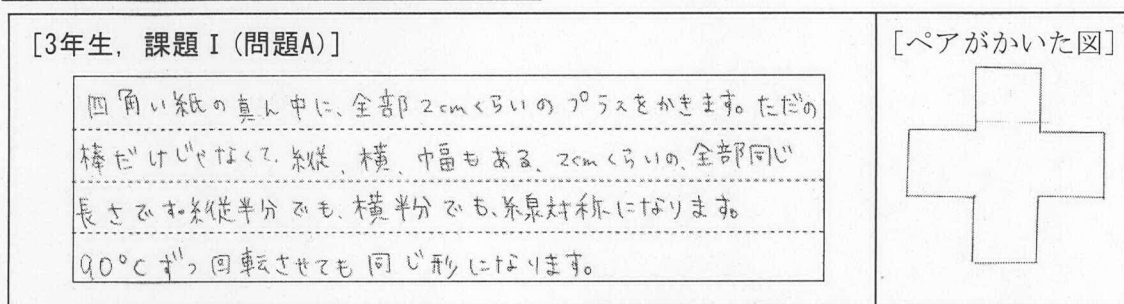 [3年生, 課題Ⅰ(問題A)]
四角い紙の真ん中に、全部2cmくらいのプラスをかきます。ただの
棒だけじゃなくて、縦、横、幅もある、2cmくらいの、全部同じ
長さです。縦半分でも、横半分でも、線対称になります。
90°Cずつ回転させても同じ形になります。
[ペアがかいた図]